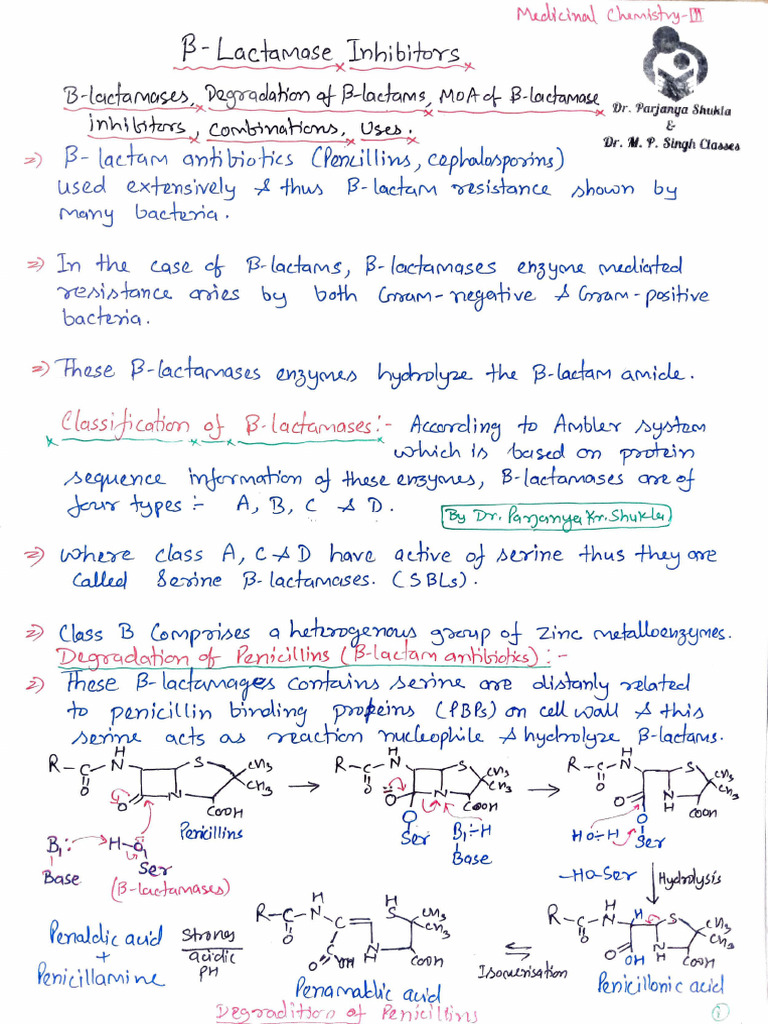 Medicinal Chemistry-III
β-Lactamase Inhibitors
β-lactamases, Degradation of β-lactams, MOA of β-lactamase
inhibitors, Combinations, Uses.
Dr. Parjanya Shukla
&
Dr. M. P. Singh Classes
⇒ β-lactam antibiotics (Pencillins, cephalosporins)
used extensively & thus β-lactam resistance shown by
many bacteria.
⇒ In the case of β-lactams, β-lactamases enzyme mediated
resistance aries by both Gram-negative & Gram-positive
bacteria.
⇒ These β-lactamases enzymes hydrolyze the β-lactam amide.
Classification of β-lactamases:- According to Ambler system
which is based on protein
sequence information of these enzymes, β-lactamases are of
four types :- A, B, C & D.
By Dr. Parjanya Kr. Shukla
⇒ where class A, C & D have active of serine thus they are
called Serine β-lactamases. (SBLs).
⇒ Class B Comprises a heterogenous group of Zinc metalloenzymes.
Degradation of Penicillins (β-lactam antibiotics) :-
⇒ These β-lactamages contains serine are distanly related
to penicillin binding proteins (PBPs) on cell wall & this
serine acts as reaction nucleophile & hydrolyze β-lactams.
R-C-N H O S CH3 CH3 N O COOH
Penicillins
B1: Base H-O Ser
(β-lactamases)
R-C-N H O S CH3 CH3 N O COOH
O Ser B1-H Base
R-C-N H O S CH3 CH3 N H O COOH
HO-H O Ser
-HO-Ser Hydrolysis
R-C-N H O H S CH3 CH3 N H O OH COOH
Penicillonic acid
Isomerisation
R-C-N H O H S CH3 CH3 N H O OH COOH
Penamaldic acid
Strones
acidic
PH
Penaldic acid
+
Penicillamine
Degradition of Penicillins
1